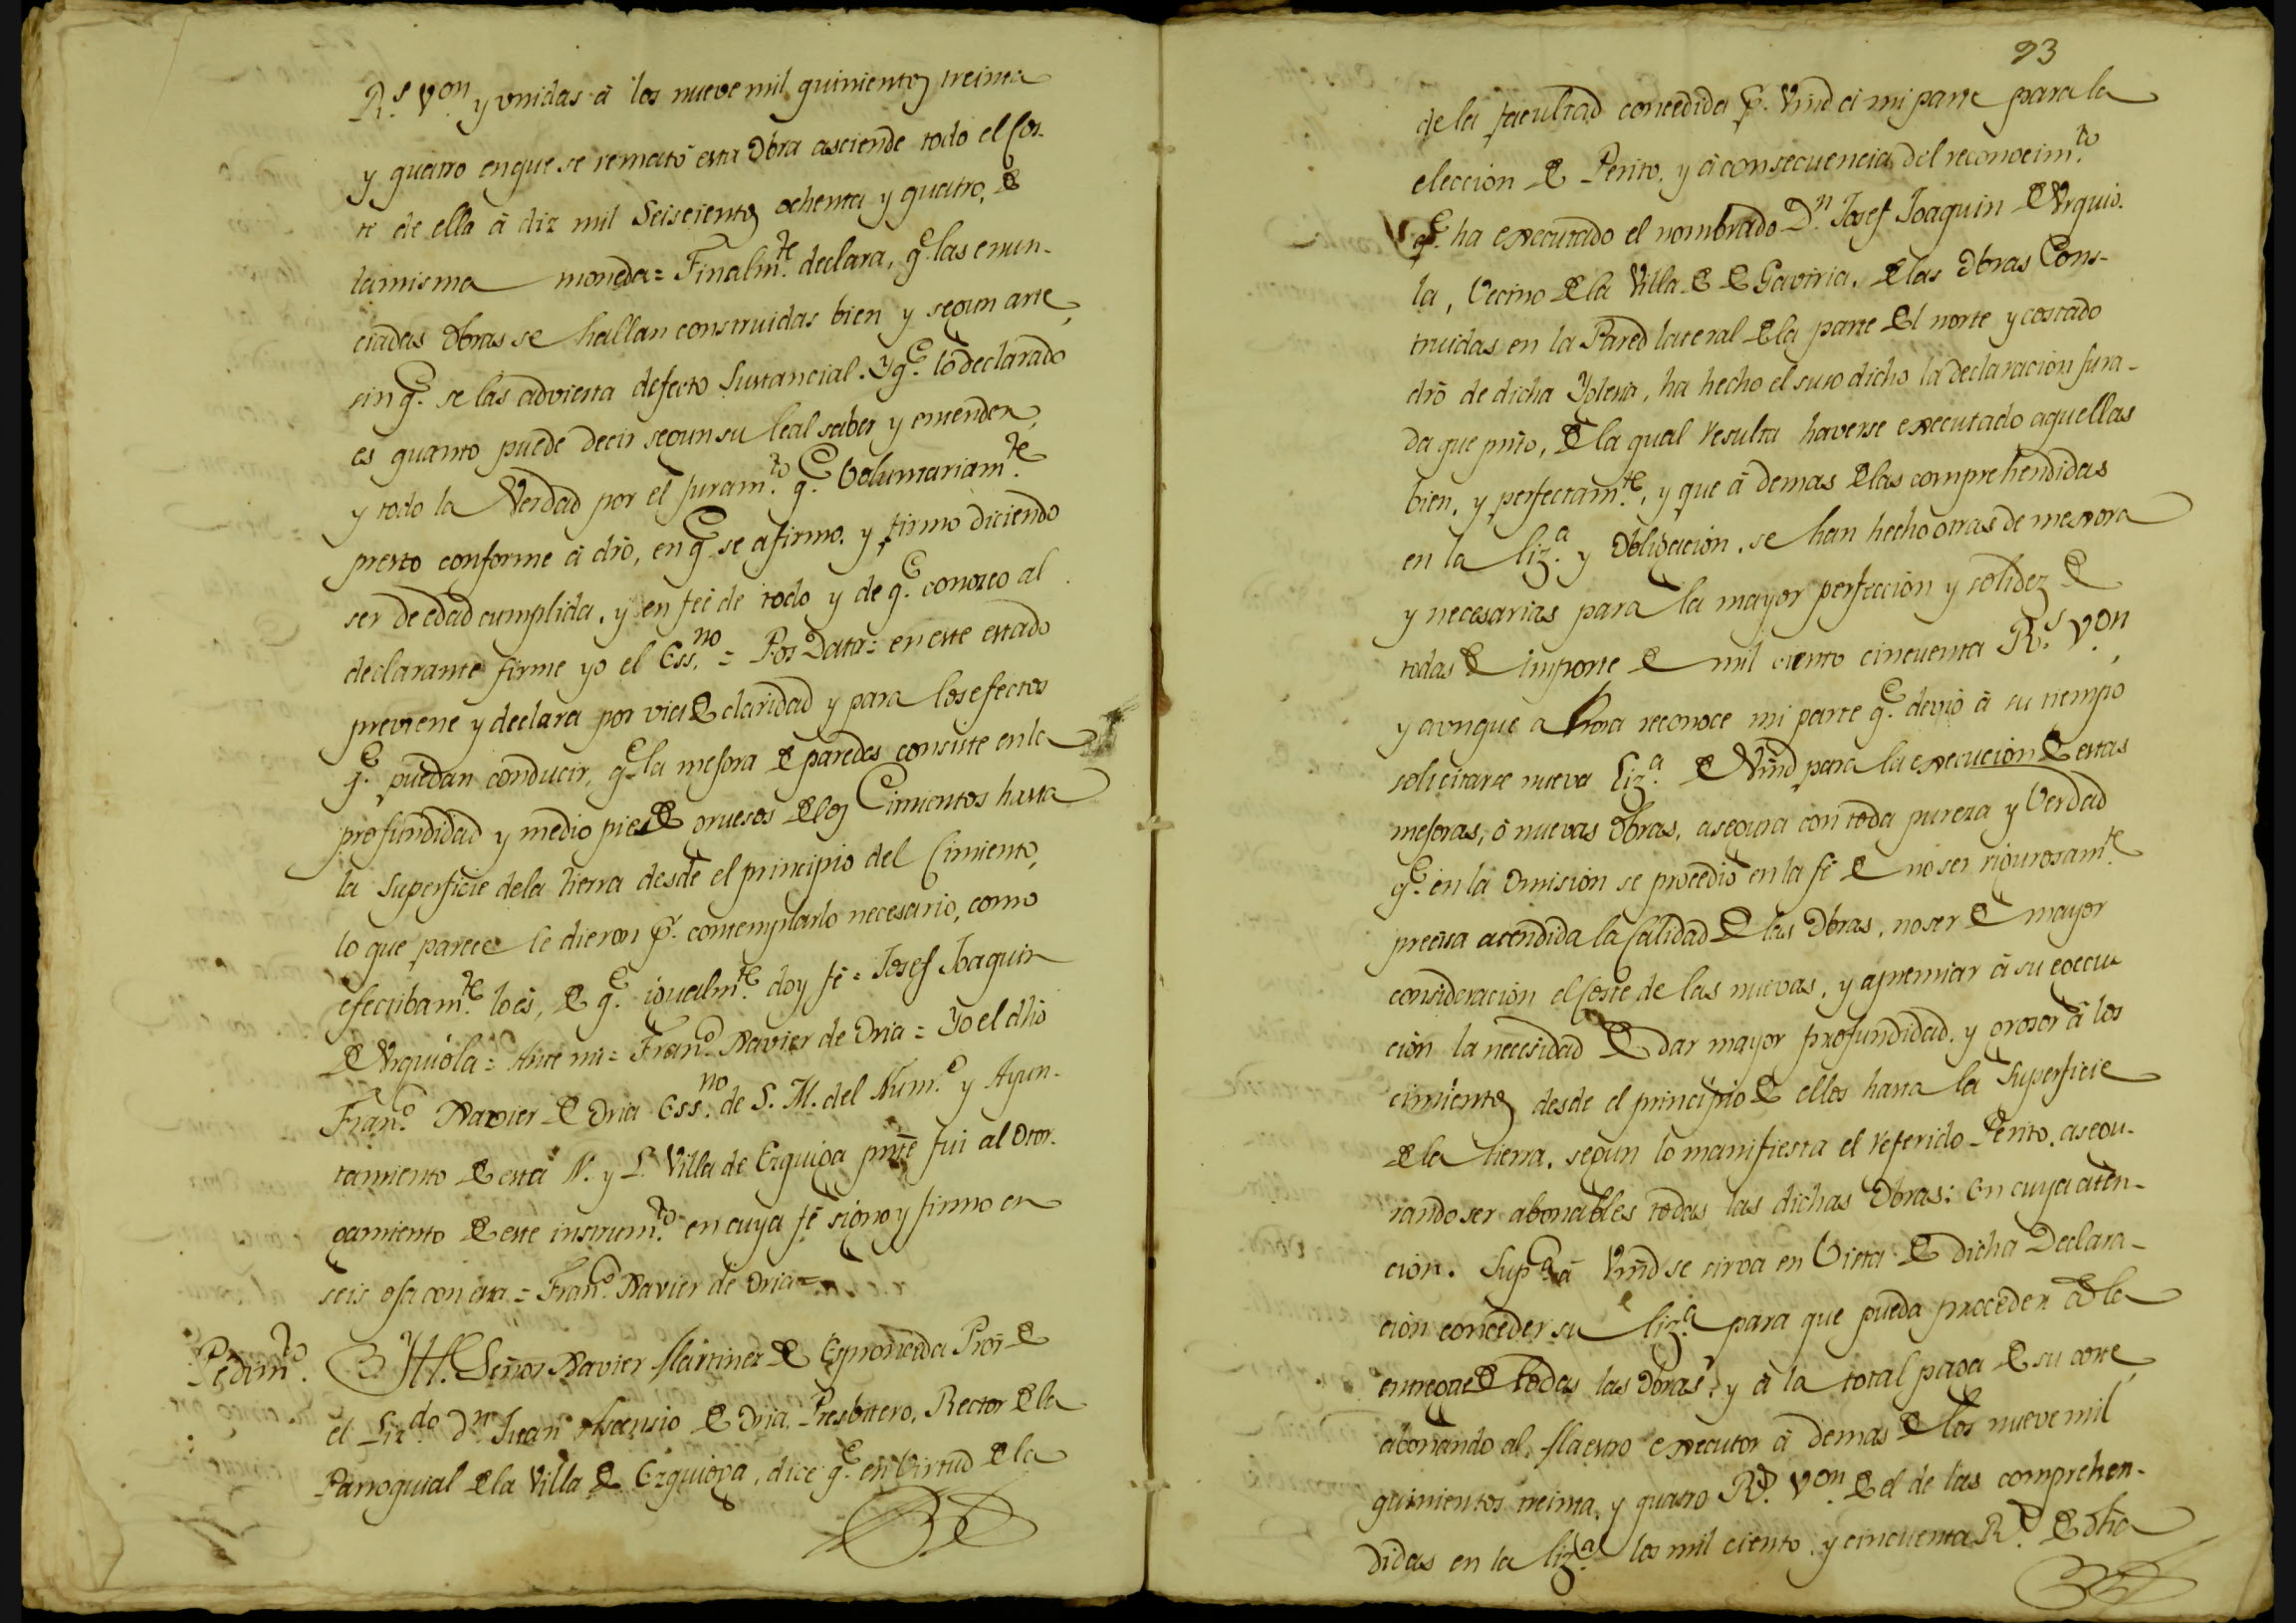 R.s v.on y vnidas â los nueve mil quinientos treinta
y quatro enque se remato esta Obra asciende todo el Cos-
te de ella â diz mil Seiscientos ochenta y quatro, de
lamisma moneda = Finalm.te declara, q.e las enun-
ciadas Obras se hallan construidas bien y segun arte,
sin q.e se las advierta defecto Sustancial. Y q.e lo declarado
es quanto puede decir segun su leal saber y entender,
y todo la Verdad por el Juram.to q.e Voluntariam.te
presto conforme â dro, en q.e se afirmo, y firmó diciendo
ser de edad cumplida, y en feé de todo y de q.e conozco al
declarante firme yo el Ess.no = Pos Data = en este estado
previene y declara por via de claridad y para los efectos
q.e puedan conducir, q.e la mejora de paredes consiste en la
profundidad y medio pie de gruesos de los Cimientos hasta
la Superficie dela tierra desde el principio del Cimiento,
lo que parece le dieron p.r contemplarlo necesario, como
efectibam.te lo és, de q.e igualm.te doy fé = Josef Joaquin
de Vrquiola = Ante mi = Fran.co Xavier de Oria = Yo el dho
Fran.co Xavier de Oria Ess.no de S. M. del Num.o y Ayun-
tamiento de esta N. y L. Villa de Ezquioga pnte fui al Otor-
gamiento de este instrum.to en cuya fé signo y firmo en
seis ojas con esta = Fran.co Xavier de Oria =
Pedim.to Ill. Señor Xavier Martinez de Espronceda Pror de
el Liz.do D.n Juan Ascensio de Oria, Presbitero, Rector de la
Parroquial de la Villa de Ezquioga, dice q.e en Virtud de la
93
de la facultad concedida p.r Vmd â mi parte para la
eleccion de Perito, y â consecuencia del reconocim.to
q.e ha executado el nombrado D.n Josef Joaquin de Vrquio-
la, Vecino de la Villa de Gaviria, de las Obras Cons-
truidas en la Pared lateral de la parte del norte y costado
dro de dicha Yglesia, ha hecho el suso dicho la declaracion jura-
da que pnto, de la qual resulta haverse executado aquellas
bien, y perfectam.te, y que â demas de las comprehendidas
en la liz.a y Obligacion, se han hecho otras de mejora
y necesarias para la mayor perfeccion y solidez de
todas de importe de mil ciento cincuenta R.s v.on,
y aunque ahora reconoce mi parte q.e devió â su tiempo
solicitarse nueva Liz.a de Vmd para la execucion de estas
mejoras, ó nuevas Obras, asegura con toda pureza y Verdad
q.e en la Omision se procedió en la fé de no ser rigurosam.te
precisa atendida la Calidad de las Obras, no ser de mayor
consideracion el Coste de las nuevas, y apremiar â su execu
cion la necesidad de dar mayor profundidad, y grosor â los
cimientos desde el principio de ellos hasta la Superficie
de la tierra, segun lo manifiesta el referido Perito, asegu-
rando ser abonables todas las dichas Obras: En cuya aten-
cion. Sup.ca â Vmd se sirva en Vista de dicha Declara-
cion conceder su liz.a para que pueda proceder â la
entrega de todas las Obras, y â la total paga de su coste,
abonando al Maestro executor â demas de los nueve mil
quinientos treinta, y quatro R.s v.on de el de las comprehen-
didas en la liz.a los mil ciento y cincuenta R.s de dha